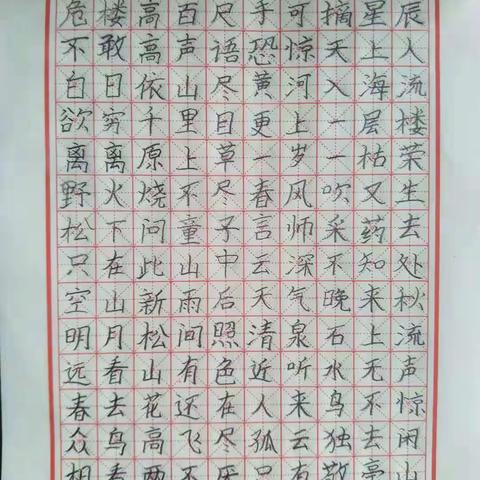 危楼高百尺手可摘星辰
不敢高声语恐惊天上人
白日依山尽黄河入海流
欲穷千里目更上一层楼
离离原上草一岁一枯荣
野火烧不尽春风吹又生
松下问童子言师采药去
只在此山中云深不知处
空山新雨后天气晚来秋
明月松间照清泉石上流
远看山有色近听水无声
春去花还在人来鸟不惊
众鸟高飞尽孤云独去闲
相看两不厌只有敬亭山